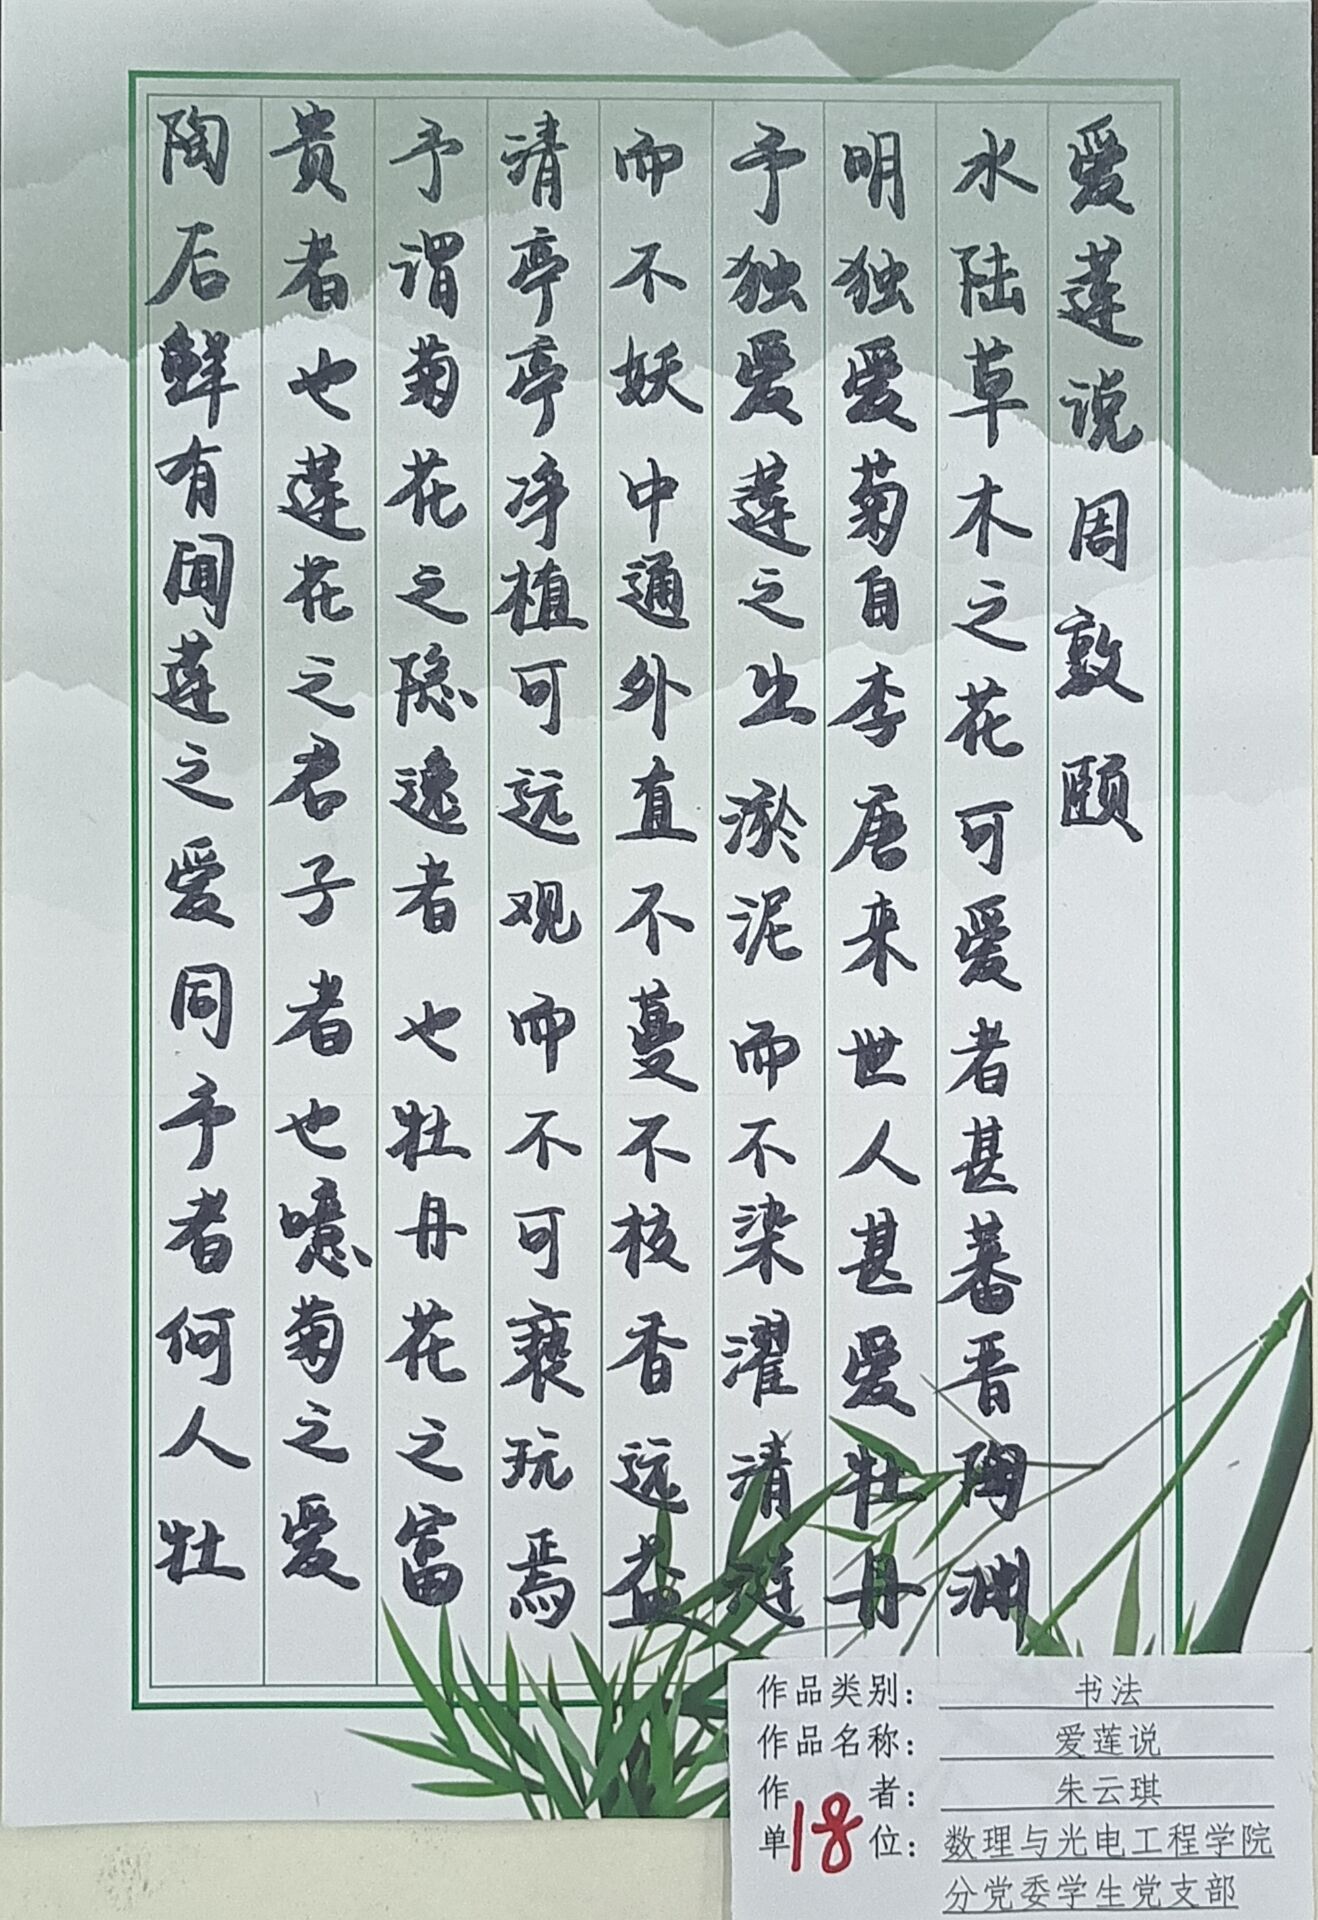 爱莲说周敦颐
水陆草木之花可爱者甚蕃晋陶渊
明独爱菊自李唐来世人甚爱牡丹
予独爱莲之出淤泥而不染濯清涟
而不妖中通外直不蔓不枝香远益
清亭亭净植可远观而不可亵玩焉
予谓菊花之隐逸者也牡丹花之富
贵者也莲花之君子者也噫菊之爱
陶后鲜有闻莲之爱同予者何人牡
作品类别：书法
作品名称：爱莲说
作者：朱云琪
单位：数理与光电工程学院
分党委学生党支部
18